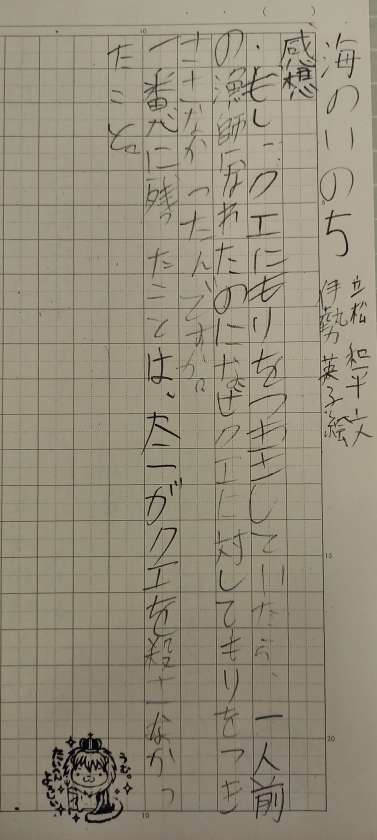 海のいのち
立松 和平 文
伊勢 英子 絵
感想
・もし、クエにもりをつきさしていたら、一人前
の漁師になれたのになぜクエに対してもりをつき
ささなかったんですか。
一番心に残ったことは、太一がクエを殺さなかっ
たこと。
うむ。
たいへん
よろしい。
5
10
15
20
10